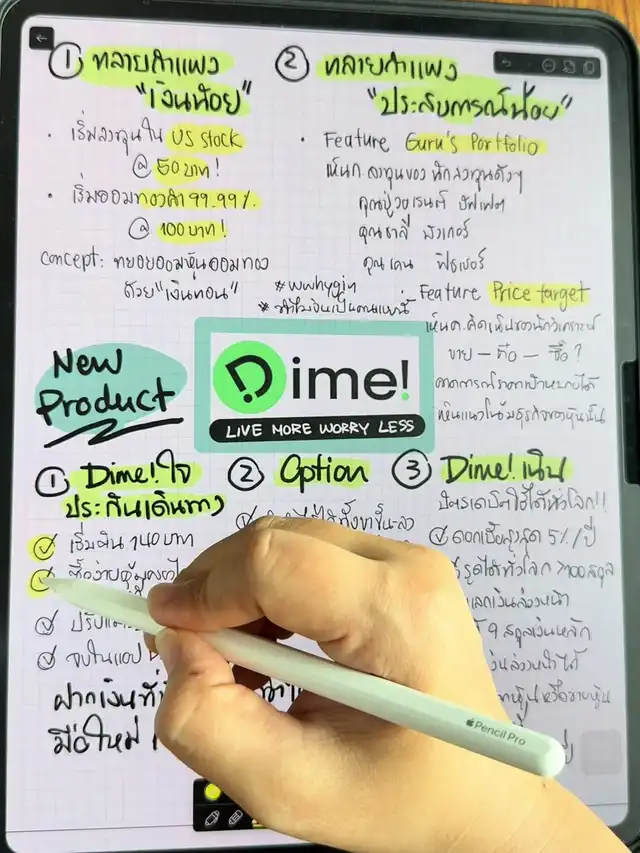 ① ทลายกำแพง
"เงินน้อย"
• เริ่มลงทุนใน US Stock
@ 50 บาท!
• เริ่มออมทองคำ 99.99%
@ 100 บาท!
concept: ทยอยออมหุ้นออมทอง
ด้วย "เงินทอน"
② ทลายกำแพง
"ประสบการณ์น้อย"
• Feature Guru's Portfolio
เห็นก.ลงทุนของนักลงทุนดังๆ
คุณปู่วอเรนต์ บัฟเฟต
คุณชาลี มังเกอร์
คุณเคน ฟิชเชอร์
#wwhygin
#ทำไมจินเป็นคนแบบนี้
Feature Price target
เห็นค.คิดเห็นของนักวิเคราะห์
ขาย – ถือ – ซื้อ ?
คาดการณ์ราคาเป้าหมายได้
เห็นแนวโน้มธุรกิจของหุ้นนั้น
New
Product
Dime!
LIVE MORE WORRY LESS
① Dime! ใจ
ประกันเดินทาง
เริ่มต้น 140 บาท
ซื้อง่าย
ปรับ
จบในแอป
② Option
③ Dime! เงิน
บัตรเดบิตใช้ได้ทั่วโลก!!
ดอกเบี้ยสูงสุด 5%/ปี
รูดได้ทั่วโลก >100 สกุล
แลกเงินล่วงหน้า
9 สกุลเงินหลัก
ล่วงหน้าได้
หุ้นหรือขายหุ้น
ฝากเงินที่
มือใหม่
Pencil Pro